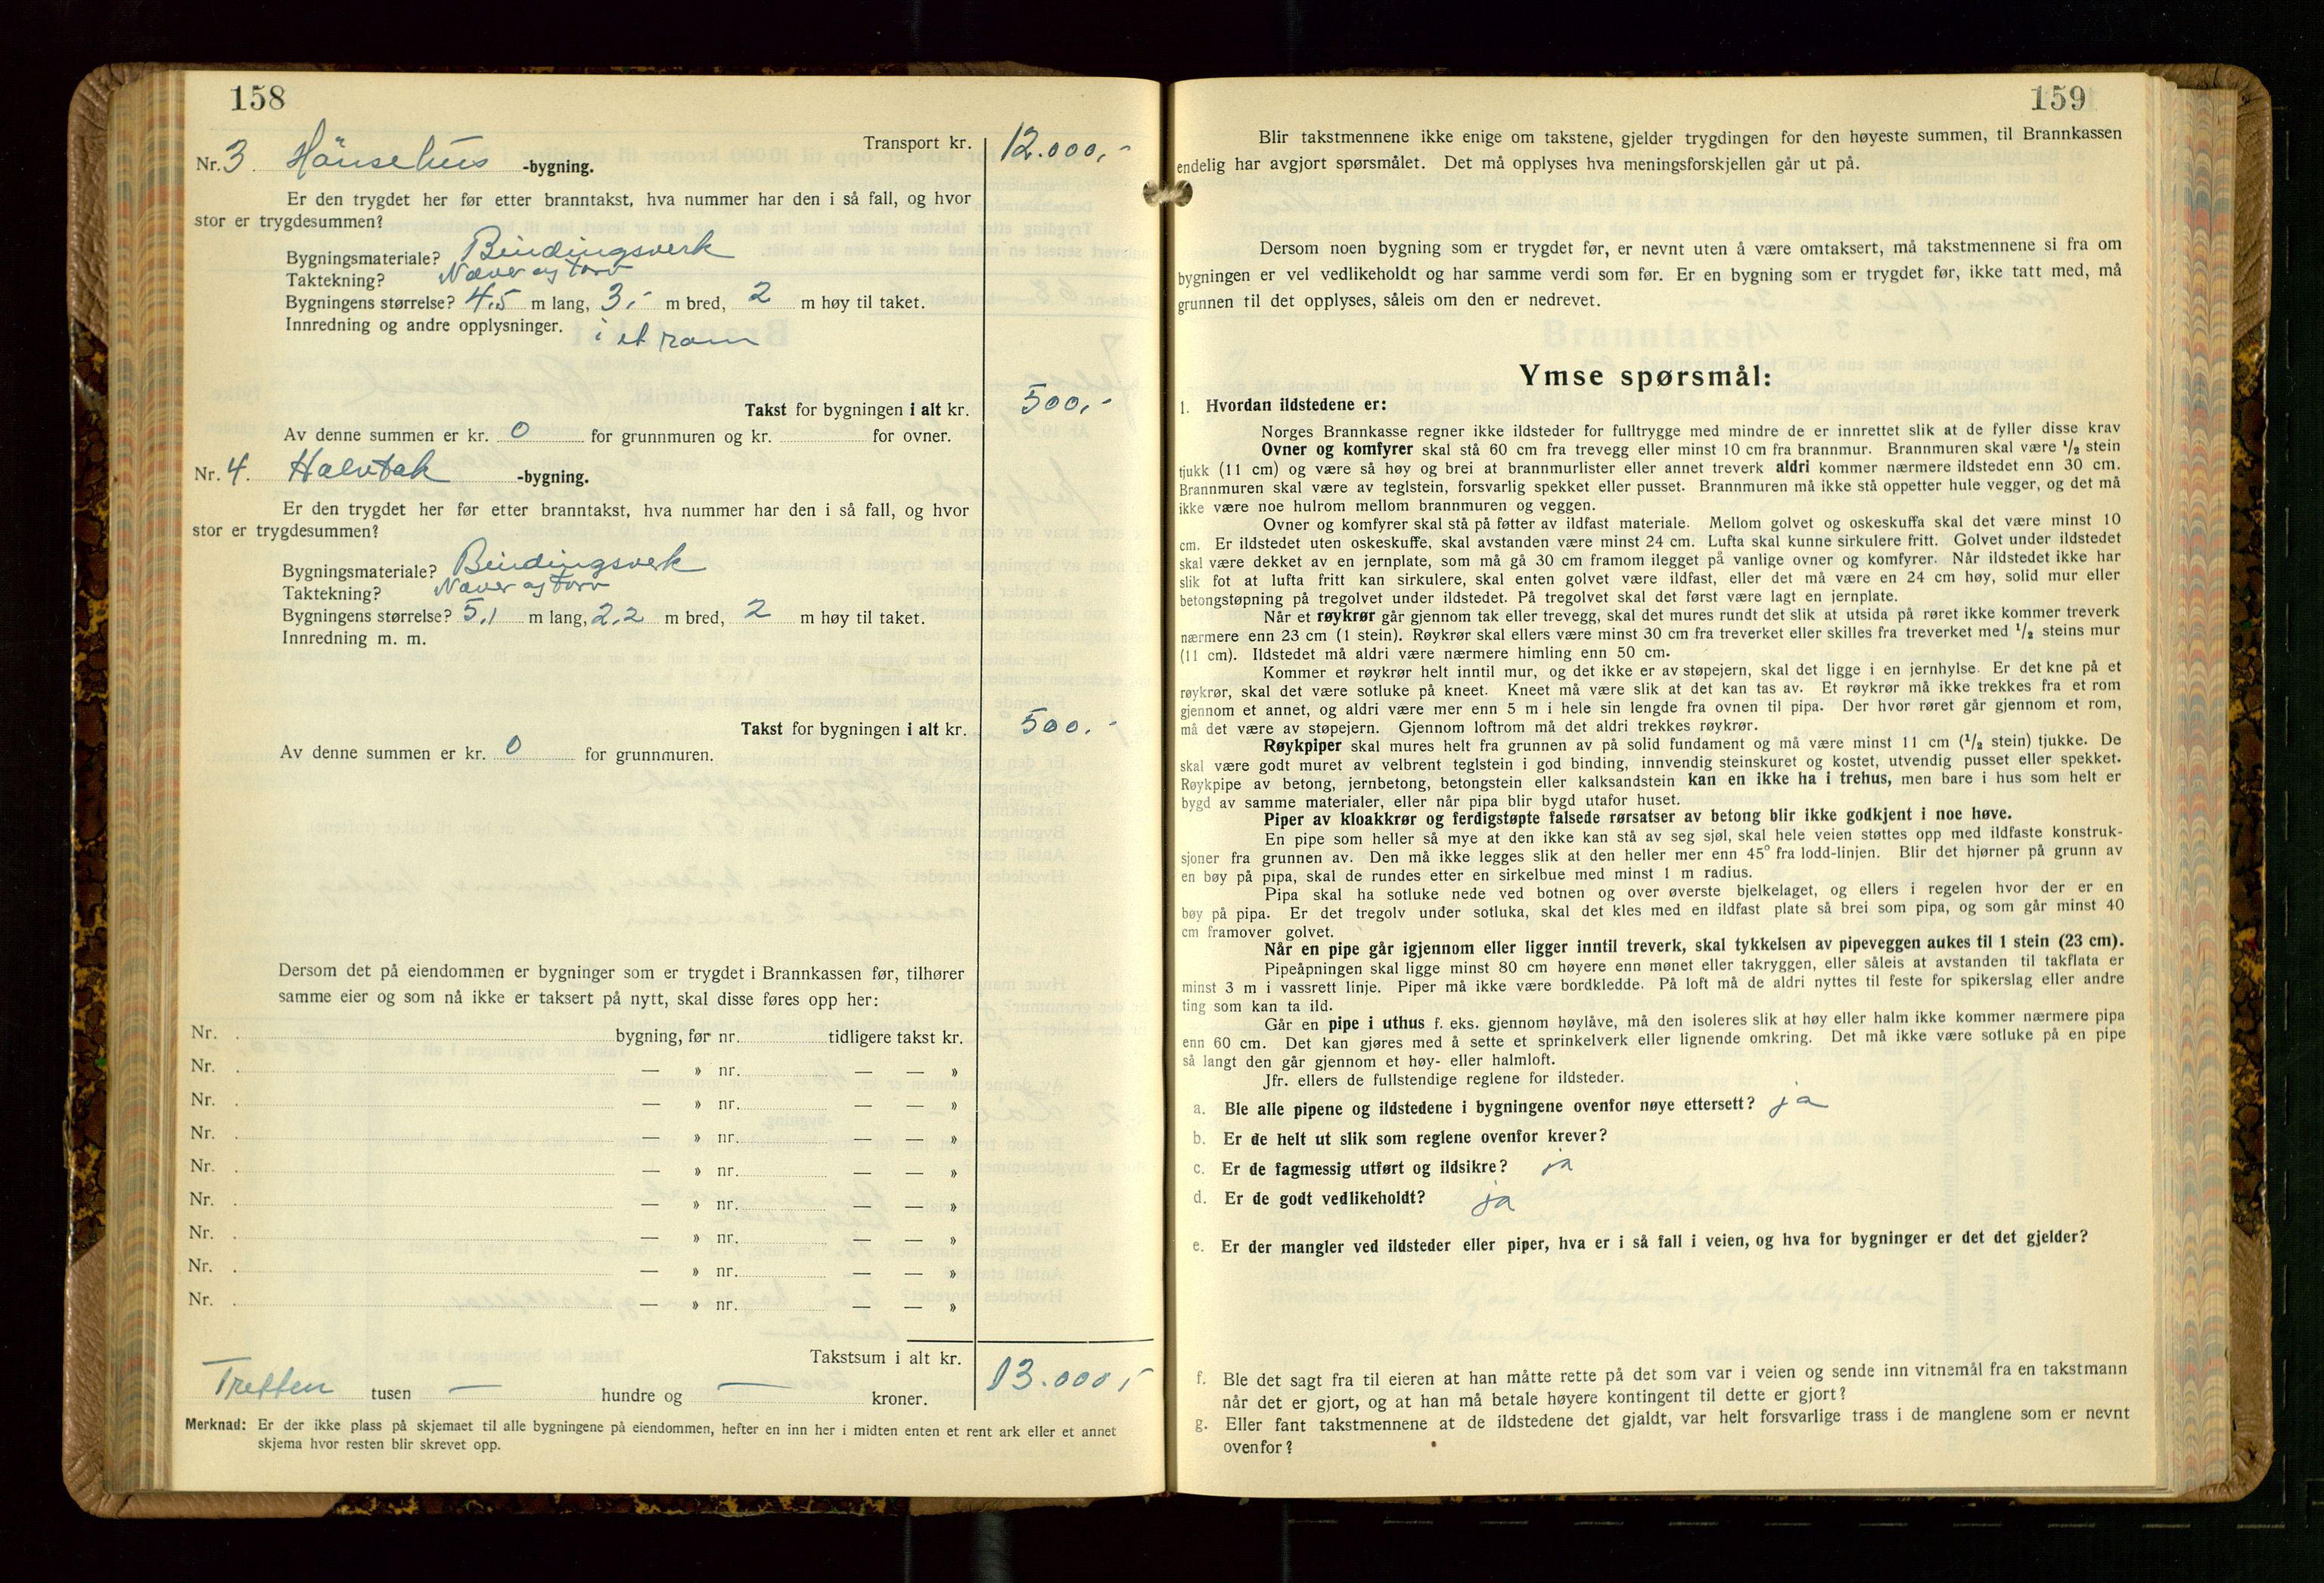 158
Transport kr. 12.000,-
Nr. 3. Hönsehus -bygning.
Er den trygdet her før etter branntakst, hva nummer har den i så fall, og hvor
stor er trygdesummen?
Bygningsmateriale? Bindingsverk
Taktekning? Næver og torv
Bygningens størrelse? 4,5 m lang, 3,- m bred, 2 m høy til taket.
Innredning og andre opplysninger. i et rom
Takst for bygningen i alt kr. 500,-
Av denne summen er kr. 0 for grunnmuren og kr. for ovner.
Nr. 4. Halvtak -bygning.
Er den trygdet her før etter branntakst, hva nummer har den i så fall, og hvor
stor er trygdesummen?
Bygningsmateriale? Bindingsverk
Taktekning? Næver og Torv
Bygningens størrelse? 5,1 m lang, 2,2 m bred, 2 m høy til taket.
Innredning m. m.
Takst for bygningen i alt kr. 500,-
Av denne summen er kr. 0 for grunnmuren.
Dersom det på eiendommen er bygninger som er trygdet i Brannkassen før, tilhører
samme eier og som nå ikke er taksert på nytt, skal disse føres opp her:
Nr. bygning, før nr. tidligere takst kr.
Nr. — » nr. — — »
Nr. — » nr. — — »
Nr. — » nr. — — »
Nr. — » nr. — — »
Nr. — » nr. — — »
Nr. — » nr. — — »
Nr. — » nr. — — »
Nr. — » nr. — — »
Takstsum i alt kr. 13.000,-
Tretten tusen — hundre og — kroner.
Merknad: Er der ikke plass på skjemaet til alle bygningene på eiendommen, hefter en inn her i midten enten et rent ark eller et annet
skjema hvor resten blir skrevet opp.
159
Blir takstmennene ikke enige om takstene, gjelder trygdingen for den høyeste summen, til Brannkassen
endelig har avgjort spørsmålet. Det må opplyses hva meningsforskjellen går ut på.
Dersom noen bygning som er trygdet før, er nevnt uten å være omtaksert, må takstmennene si fra om
bygningen er vel vedlikeholdt og har samme verdi som før. Er en bygning som er trygdet før, ikke tatt med, må
grunnen til det opplyses, såleis om den er nedrevet.
Ymse spørsmål:
1. Hvordan ildstedene er:
Norges Brannkasse regner ikke ildsteder for fulltrygge med mindre de er innrettet slik at de fyller disse krav
Ovner og komfyrer skal stå 60 cm fra trevegg eller minst 10 cm fra brannmur. Brannmuren skal være ½ stein
tjukk (11 cm) og være så høy og brei at brannmurlister eller annet treverk aldri kommer nærmere ildstedet enn 30 cm.
Brannmuren skal være av teglstein, forsvarlig spekket eller pusset. Brannmuren må ikke stå oppetter hule vegger, og det må
ikke være noe hulrom mellom brannmuren og veggen.
Ovner og komfyrer skal stå på føtter av ildfast materiale. Mellom golvet og oskeskuffa skal det være minst 10
cm. Er ildstedet uten oskeskuffe, skal avstanden være minst 24 cm. Lufta skal kunne sirkulere fritt. Golvet under ildstedet
skal være dekket av en jernplate, som må gå 30 cm framom ilegget på vanlige ovner og komfyrer. Når ildstedet ikke har
slik fot at lufta fritt kan sirkulere, skal enten golvet være ildfast, eller det må være en 24 cm høy, solid mur eller
betongstøpning på tregolvet under ildstedet. På tregolvet skal det først være lagt en jernplate.
Når et røykrør går gjennom tak eller trevegg, skal det mures rundt det slik at utsida på røret ikke kommer treverk
nærmere enn 23 cm (1 stein). Røykrør skal ellers være minst 30 cm fra treverket eller skilles fra treverket med ½ steins mur
(11 cm). Ildstedet må aldri være nærmere himling enn 50 cm.
Kommer et røykrør helt inntil mur, og det ikke er av støpejern, skal det ligge i en jernhylse. Er det kne på et
røykrør, skal det være sotluke på kneet. Kneet må være slik at det kan tas av. Et røykrør må ikke trekkes fra et rom
gjennom et annet, og aldri være mer enn 5 m i hele sin lengde fra ovnen til pipa. Der hvor røret går gjennom et rom,
må det være av støpejern. Gjennom loftrom må det aldri trekkes røykrør.
Røykpiper skal mures helt fra grunnen av på solid fundament og må være minst 11 cm (½ stein) tjukke. De
skal være godt muret av velbrent teglstein i god binding, innvendig steinskuret og kostet, utvendig pusset eller spekket.
Røykpipe av betong, jernbetong, betongstein eller kalksandstein kan en ikke ha i trehus, men bare i hus som helt er
bygd av samme materialer, eller når pipa blir bygd utafor huset.
Piper av kloakkrør og ferdigstøpte falsede rørsatser av betong blir ikke godkjent i noe høve.
En pipe som heller så mye at den ikke kan stå av seg sjøl, skal hele veien støttes opp med ildfaste konstruk-
sjoner fra grunnen av. Den må ikke legges slik at den heller mer enn 45° fra lodd-linjen. Blir det hjørner på grunn av
en bøy på pipa, skal de rundes etter en sirkelbue med minst 1 m radius.
Pipa skal ha sotluke nede ved botnen og over øverste bjelkelaget, og ellers i regelen hvor der er en
bøy på pipa. Er det tregolv under sotluka, skal det kles med en ildfast plate så brei som pipa, og som går minst 40
cm framover golvet.
Når en pipe går igjennom eller ligger inntil treverk, skal tykkelsen av pipeveggen aukes til 1 stein (23 cm).
Pipeåpningen skal ligge minst 80 cm høyere enn mønet eller takryggen, eller såleis at avstanden til takflata er
minst 3 m i vassrett linje. Piper må ikke være bordkledde. På loft må de aldri nyttes til feste for spikerslag eller andre
ting som kan ta ild.
Går en pipe i uthus f. eks. gjennom høylåve, må den isoleres slik at høy eller halm ikke kommer nærmere pipa
enn 60 cm. Det kan gjøres med å sette et sprinkelverk eller lignende omkring. Det må ikke være sotluke på en pipe
så langt den går gjennom et høy- eller halmloft.
Jfr. ellers de fullstendige reglene for ildsteder.
a. Ble alle pipene og ildstedene i bygningene ovenfor nøye ettersett? ja
b. Er de helt ut slik som reglene ovenfor krever?
c. Er de fagmessig utført og ildsikre? ja
d. Er de godt vedlikeholdt? ja
e. Er der mangler ved ildsteder eller piper, hva er i så fall i veien, og hva for bygninger er det det gjelder?
f. Ble det sagt fra til eieren at han måtte rette på det som var i veien og sende inn vitnemål fra en takstmann
når det er gjort, og at han må betale høyere kontingent til dette er gjort?
g. Eller fant takstmennene at de ildstedene det gjaldt, var helt forsvarlige trass i de manglene som er nevnt
ovenfor?